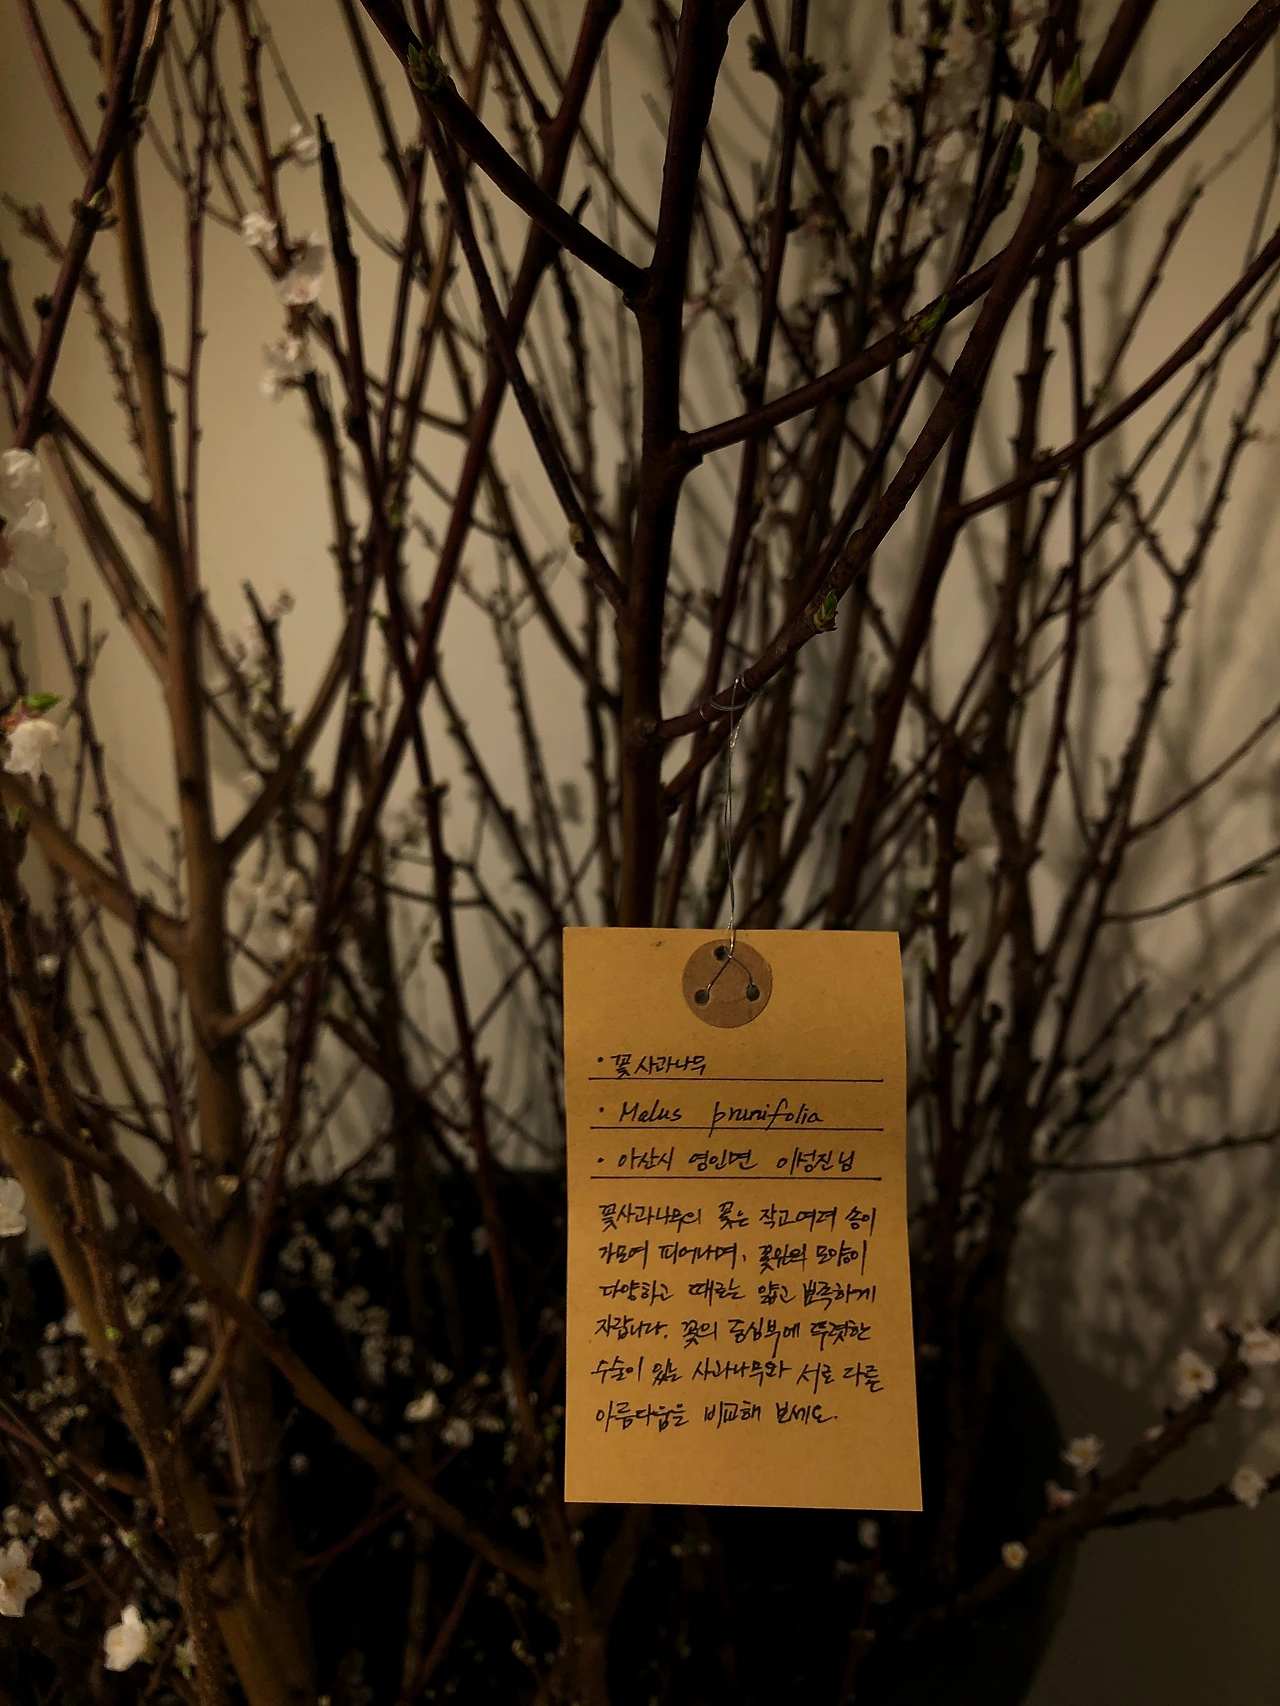 · 꽃사과나무
· Malus prunifolia
· 아산시 영인면 이성진님
꽃사과나무의 꽃은 작고 여러 송이
가 모여 피어나며, 꽃잎의 모양이
다양하고 때로는 얇고 뾰족하게
자랍니다. 꽃의 중심부에 뚜렷한
수술이 있는 사과나무와 서로 다른
아름다움을 비교해 보세요.